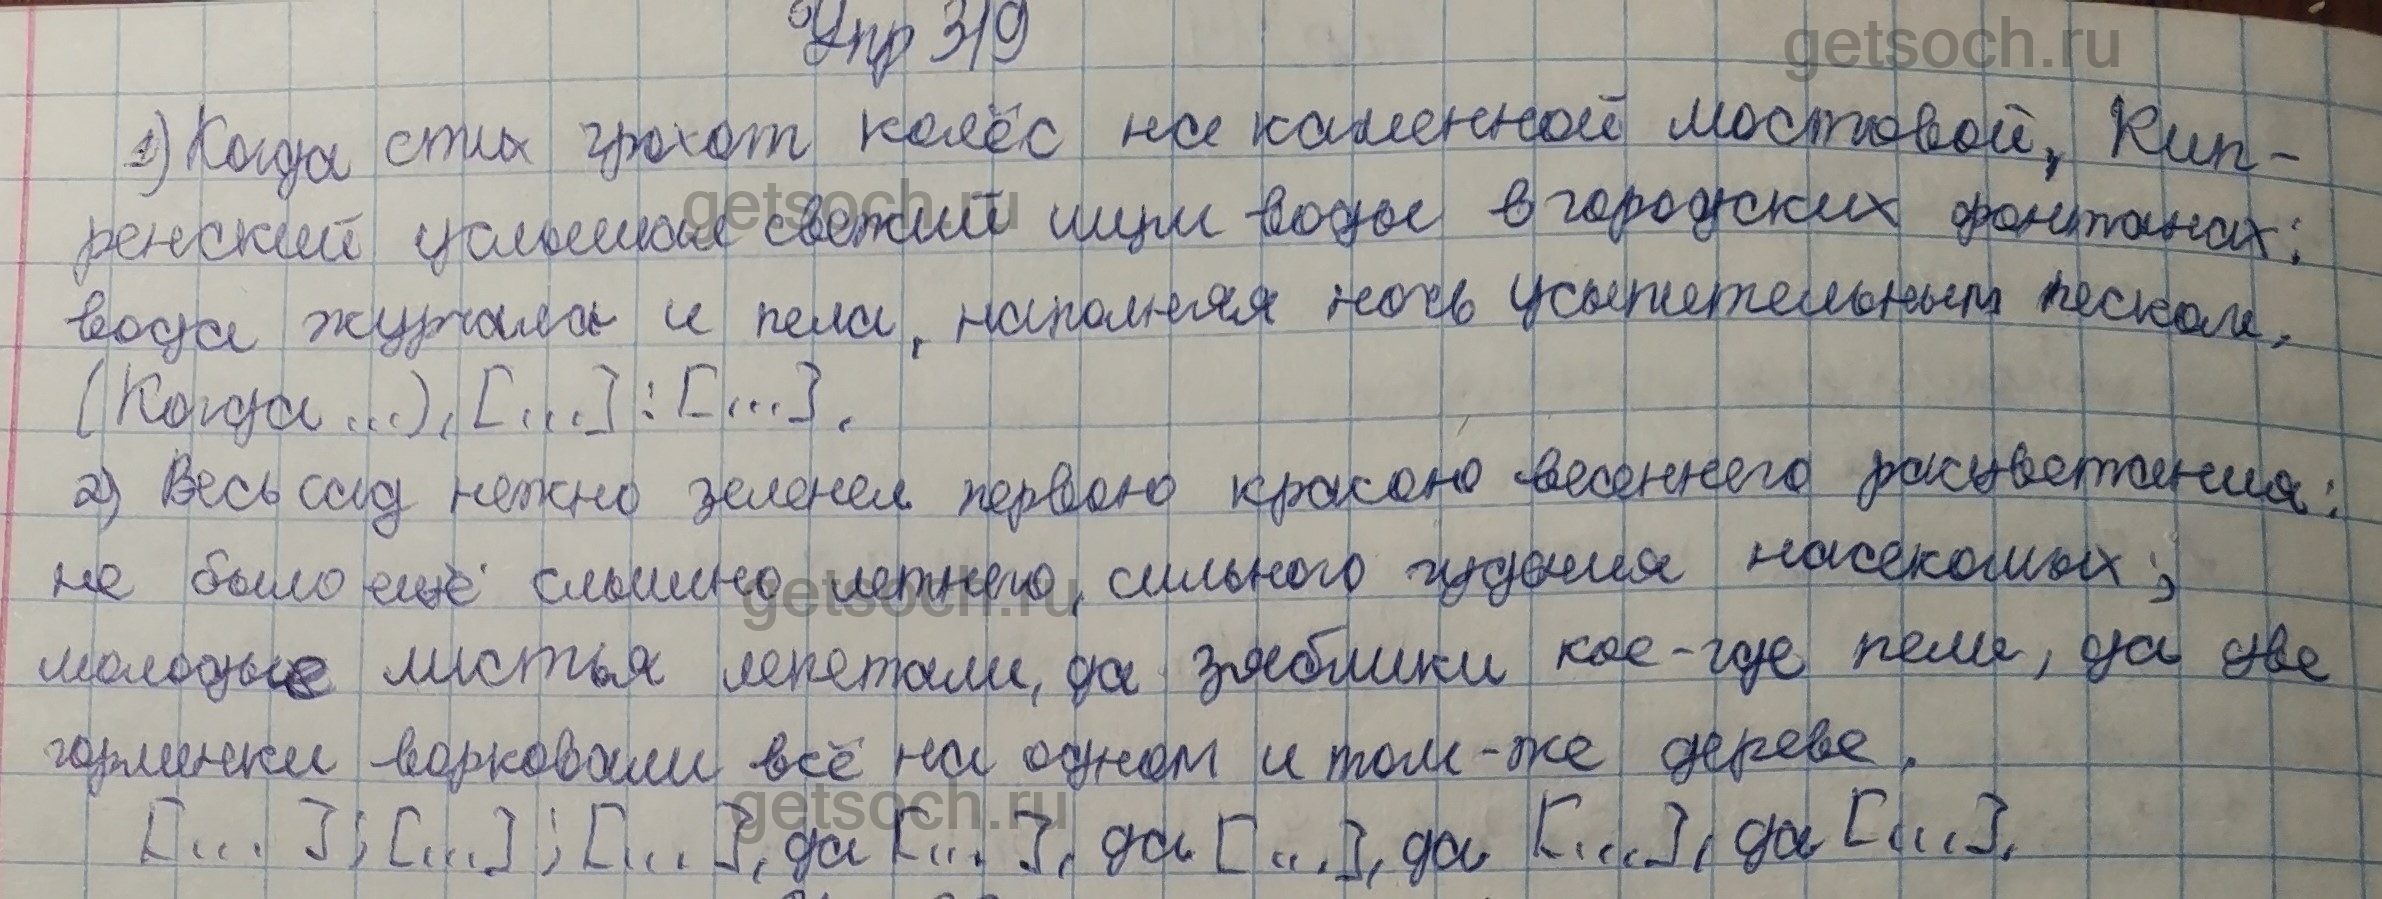 Упр 319
getsoch.ru
1) Когда стих грохот колёс на каменной мостовой, Кип-
getsoch.ru
ренский услышал свежий шум воды в городских фонтанах:
вода журчала и пела, наполняя ночь усыпительным песком.
(Когда ...), [...]: [...].
2) Весь сад нежно зеленел первою красою весеннего расцветания:
не было ещё слышно летнего, сильного гудения насекомых;
getsoch.ru
молодые листья лепетали, да зяблики кое-где пели, да две
горлинки ворковали всё на одном и том-же дереве.
getsoch.ru
[... ]; [...]; [... ], да [... ], да [...], да [...], да [...].